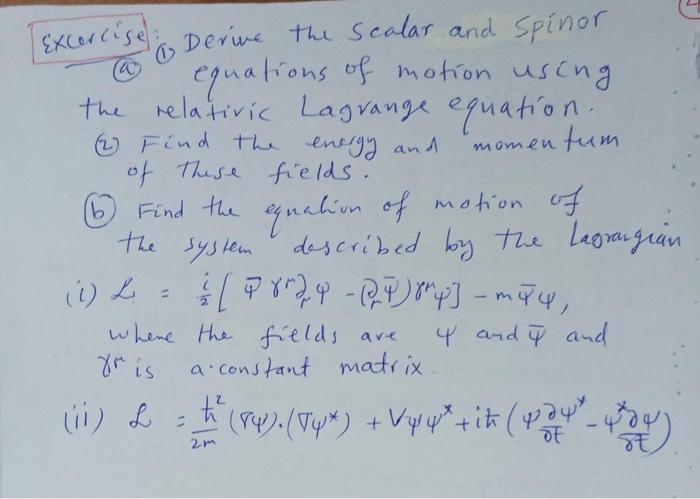 Excercise: ① Derive the scalar and spinor
ⓐ equations of motion using
the relativic Lagrange equation.
② Find the energy and momentum
of these fields.
ⓑ Find the equation of motion of
the system described by the Lagrangian
(i) L = i/2 [ψ̄ γ^μ ∂_μ ψ - (∂_μ ψ̄) γ^μ ψ] - m ψ̄ ψ,
where the fields are ψ and ψ̄ and
γ^μ is a constant matrix.
(ii) L = ħ²/2m (∇ψ).(∇ψ*) + Vψψ* + iħ (ψ ∂ψ*/∂t - ψ* ∂ψ/∂t)